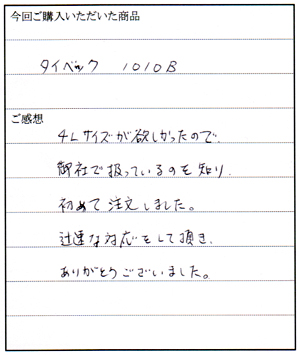 今回ご購入いただいた商品
タイベック 1010B
ご感想
4Lサイズが欲しかったので、
御社で扱っているのを知り、
初めて注文しました。
迅速な対応をして頂き、
ありがとうございました。